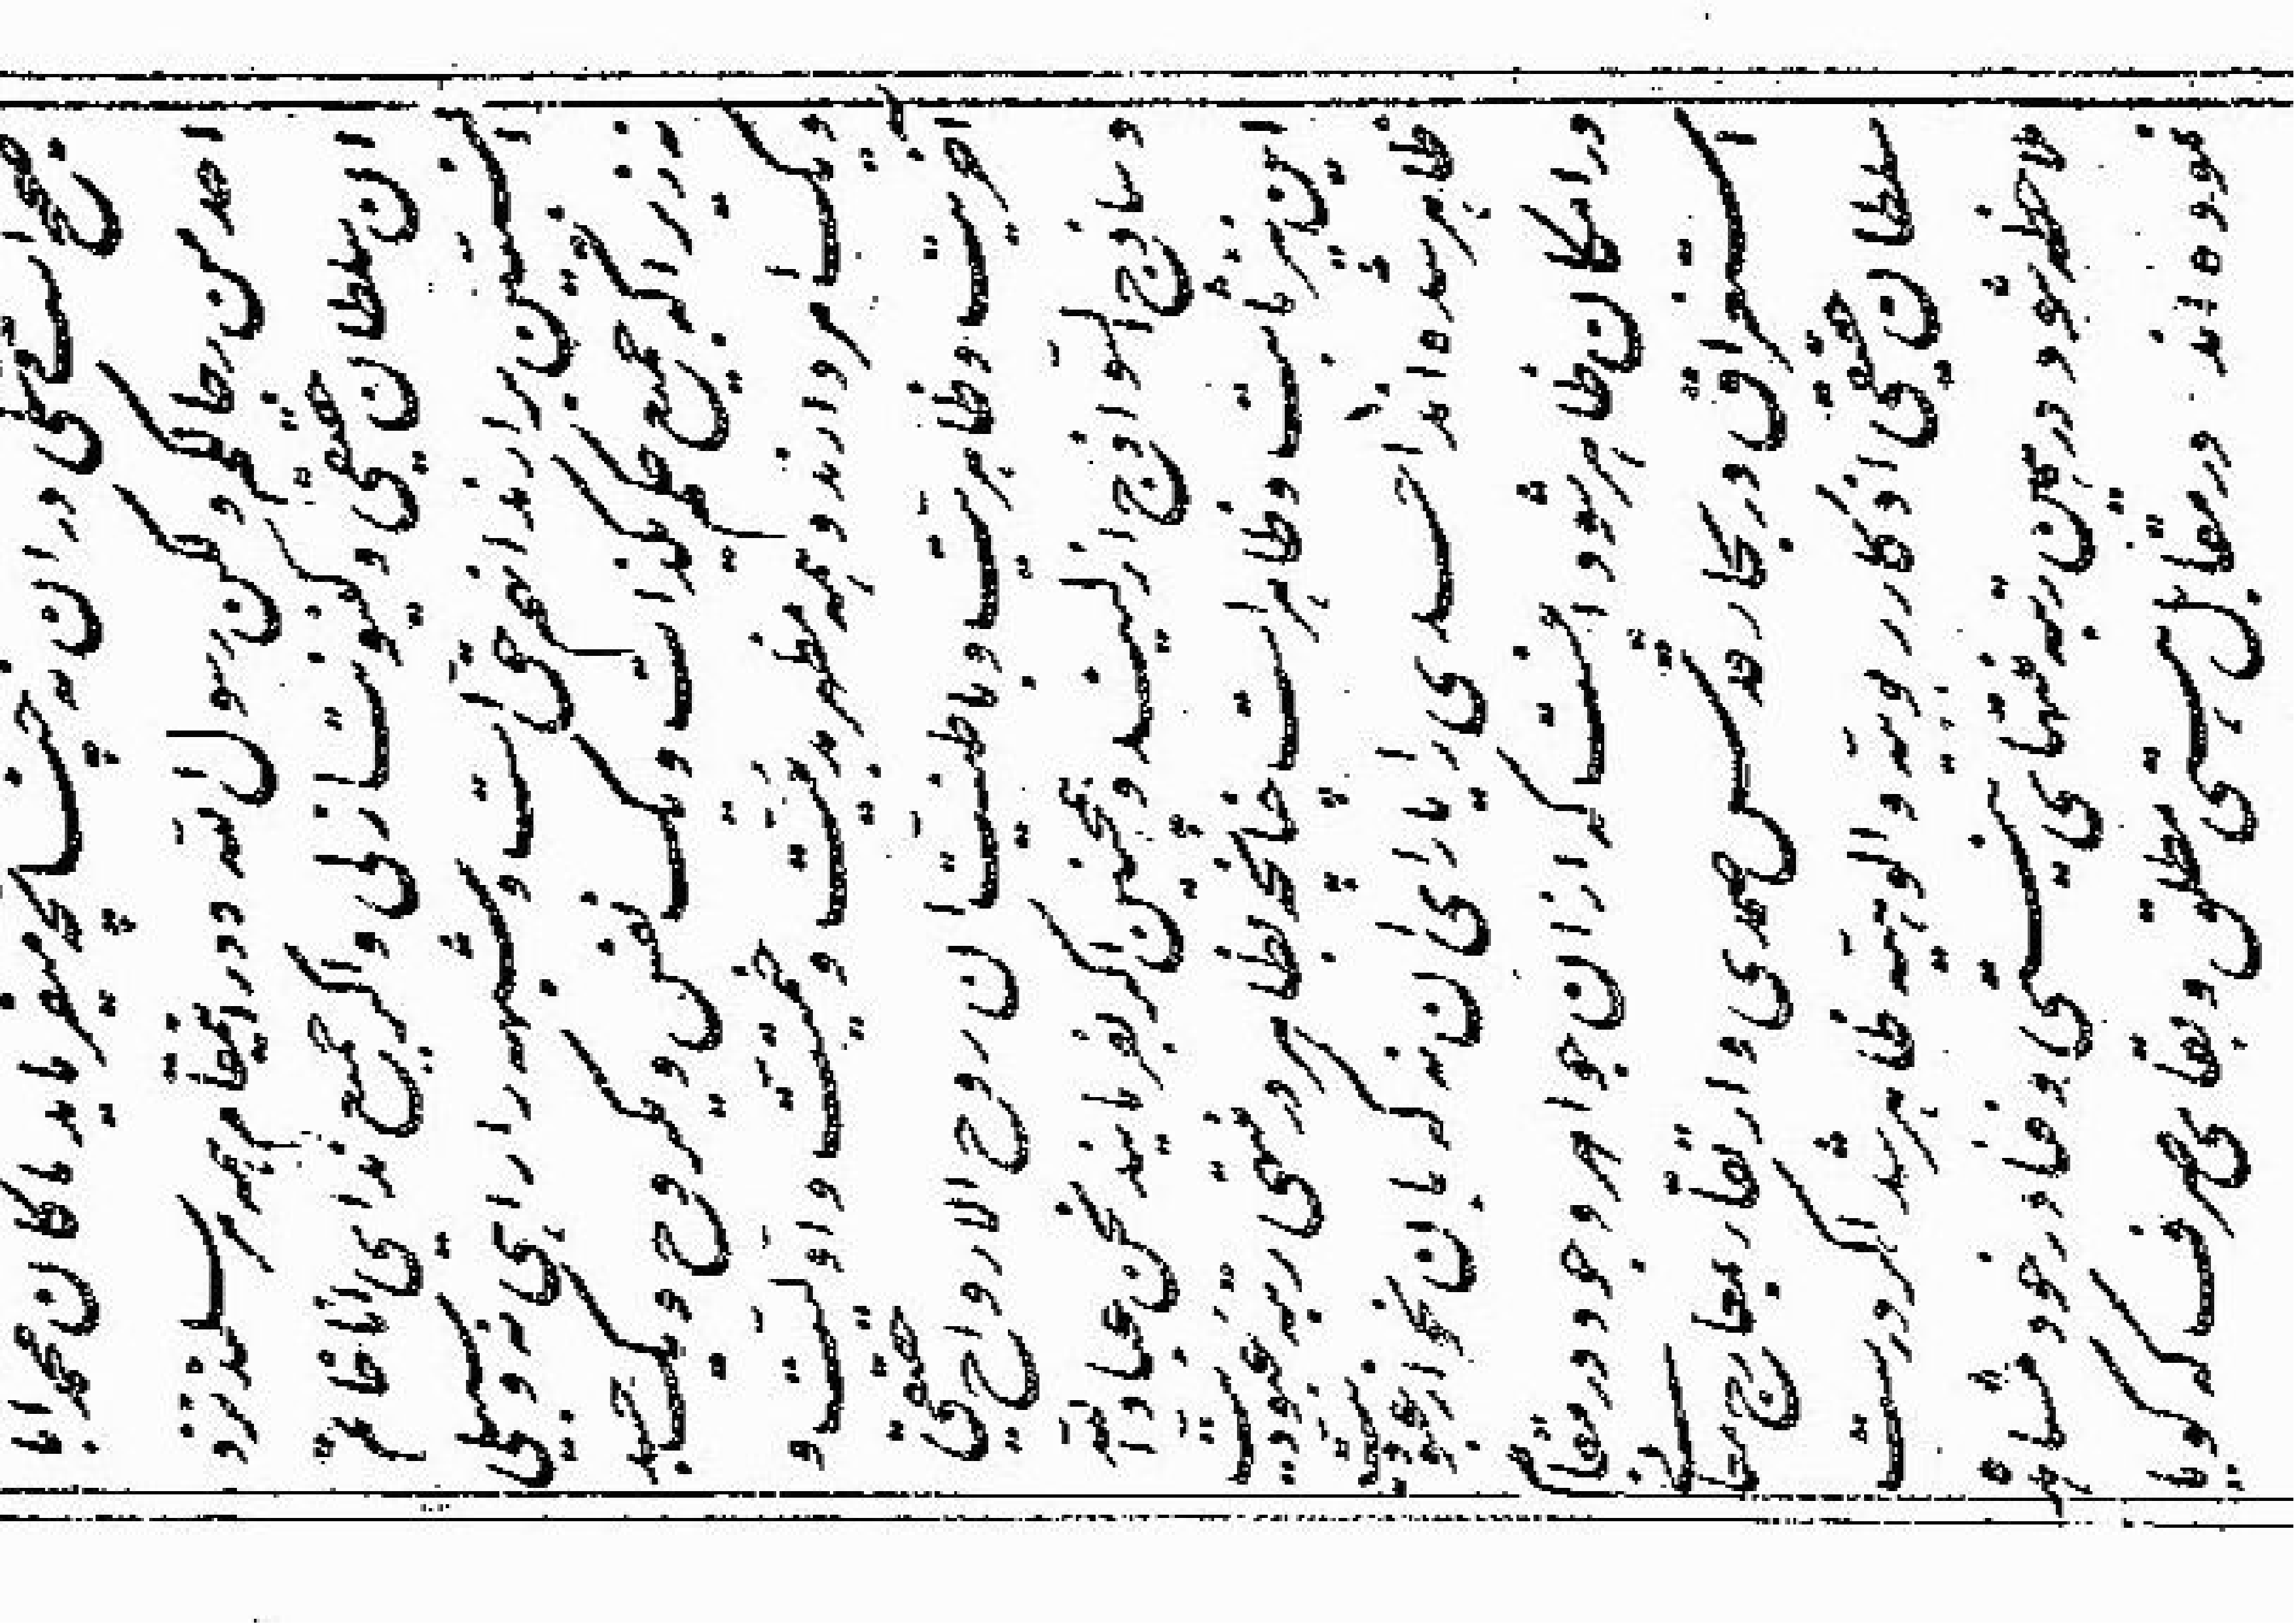 صحیح است و شکی در آن نیست چنانچه میفرماید ما کان محمد ابا
احد من رجالکم ولکن رسول الله و در اینمقام همه مرسلند از نزد
آن سلطان حقیقی و کینونت ازلی و اگر جمیع ندای انا خاتم
النبیین برآرند آنهم حق است و شبهه را راهی نه و سبیلی
نه زیرا که جمیع حکم یکذات و یکنفس و یکروح و یکجسد
و یک امر دارند و همه مظهر بدئیت و ختمیت و اولیت و
آخریت و ظاهریت و باطنیت آن روح الارواح حقیقی
و ساذج السواذج ازلیند و همچنین اگر بفرمایند نحن عباد الله
این نیز ثابت و ظاهر است چنانچه بظاهر در منتهی رتبه عبودیت
ظاهر شده اند احدی را یارای آن نه که بآن نحو از عبودیت
در امکان ظاهر شود اینست که از آن جواهر وجود در مقام
استغراق در بحار قدس صمدی و ارتقاء بمعارج معانی
سلطان حقیقی اذکار ربوبیه و الوهیه ظاهر شد اگر درست
ملاحظه شود در همین رتبه منتهای نیستی و فنا در خود مشاهده
نموده اند در مقابل هستی مطلق و بقای صرف که گویا